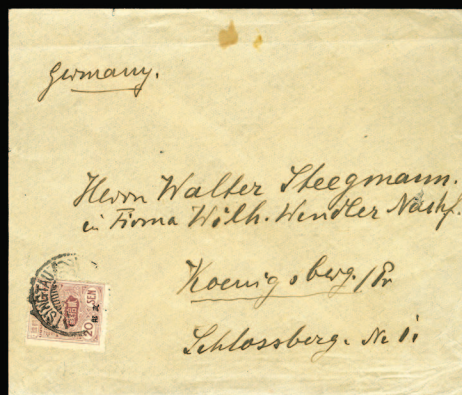 Germany.
Herrn Walter Steegmann.
in Firma Wilh. Wendler Nachf.
Koenigsberg. / Pr
Schlossberg. No 1.
TSINGTAU
20 SEN